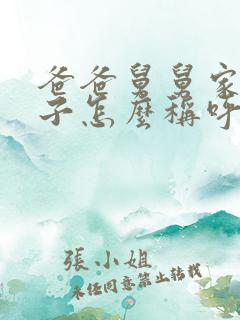 爸爸舅舅家
子怎麼稱呼
張小姐
未任同意禁止转载